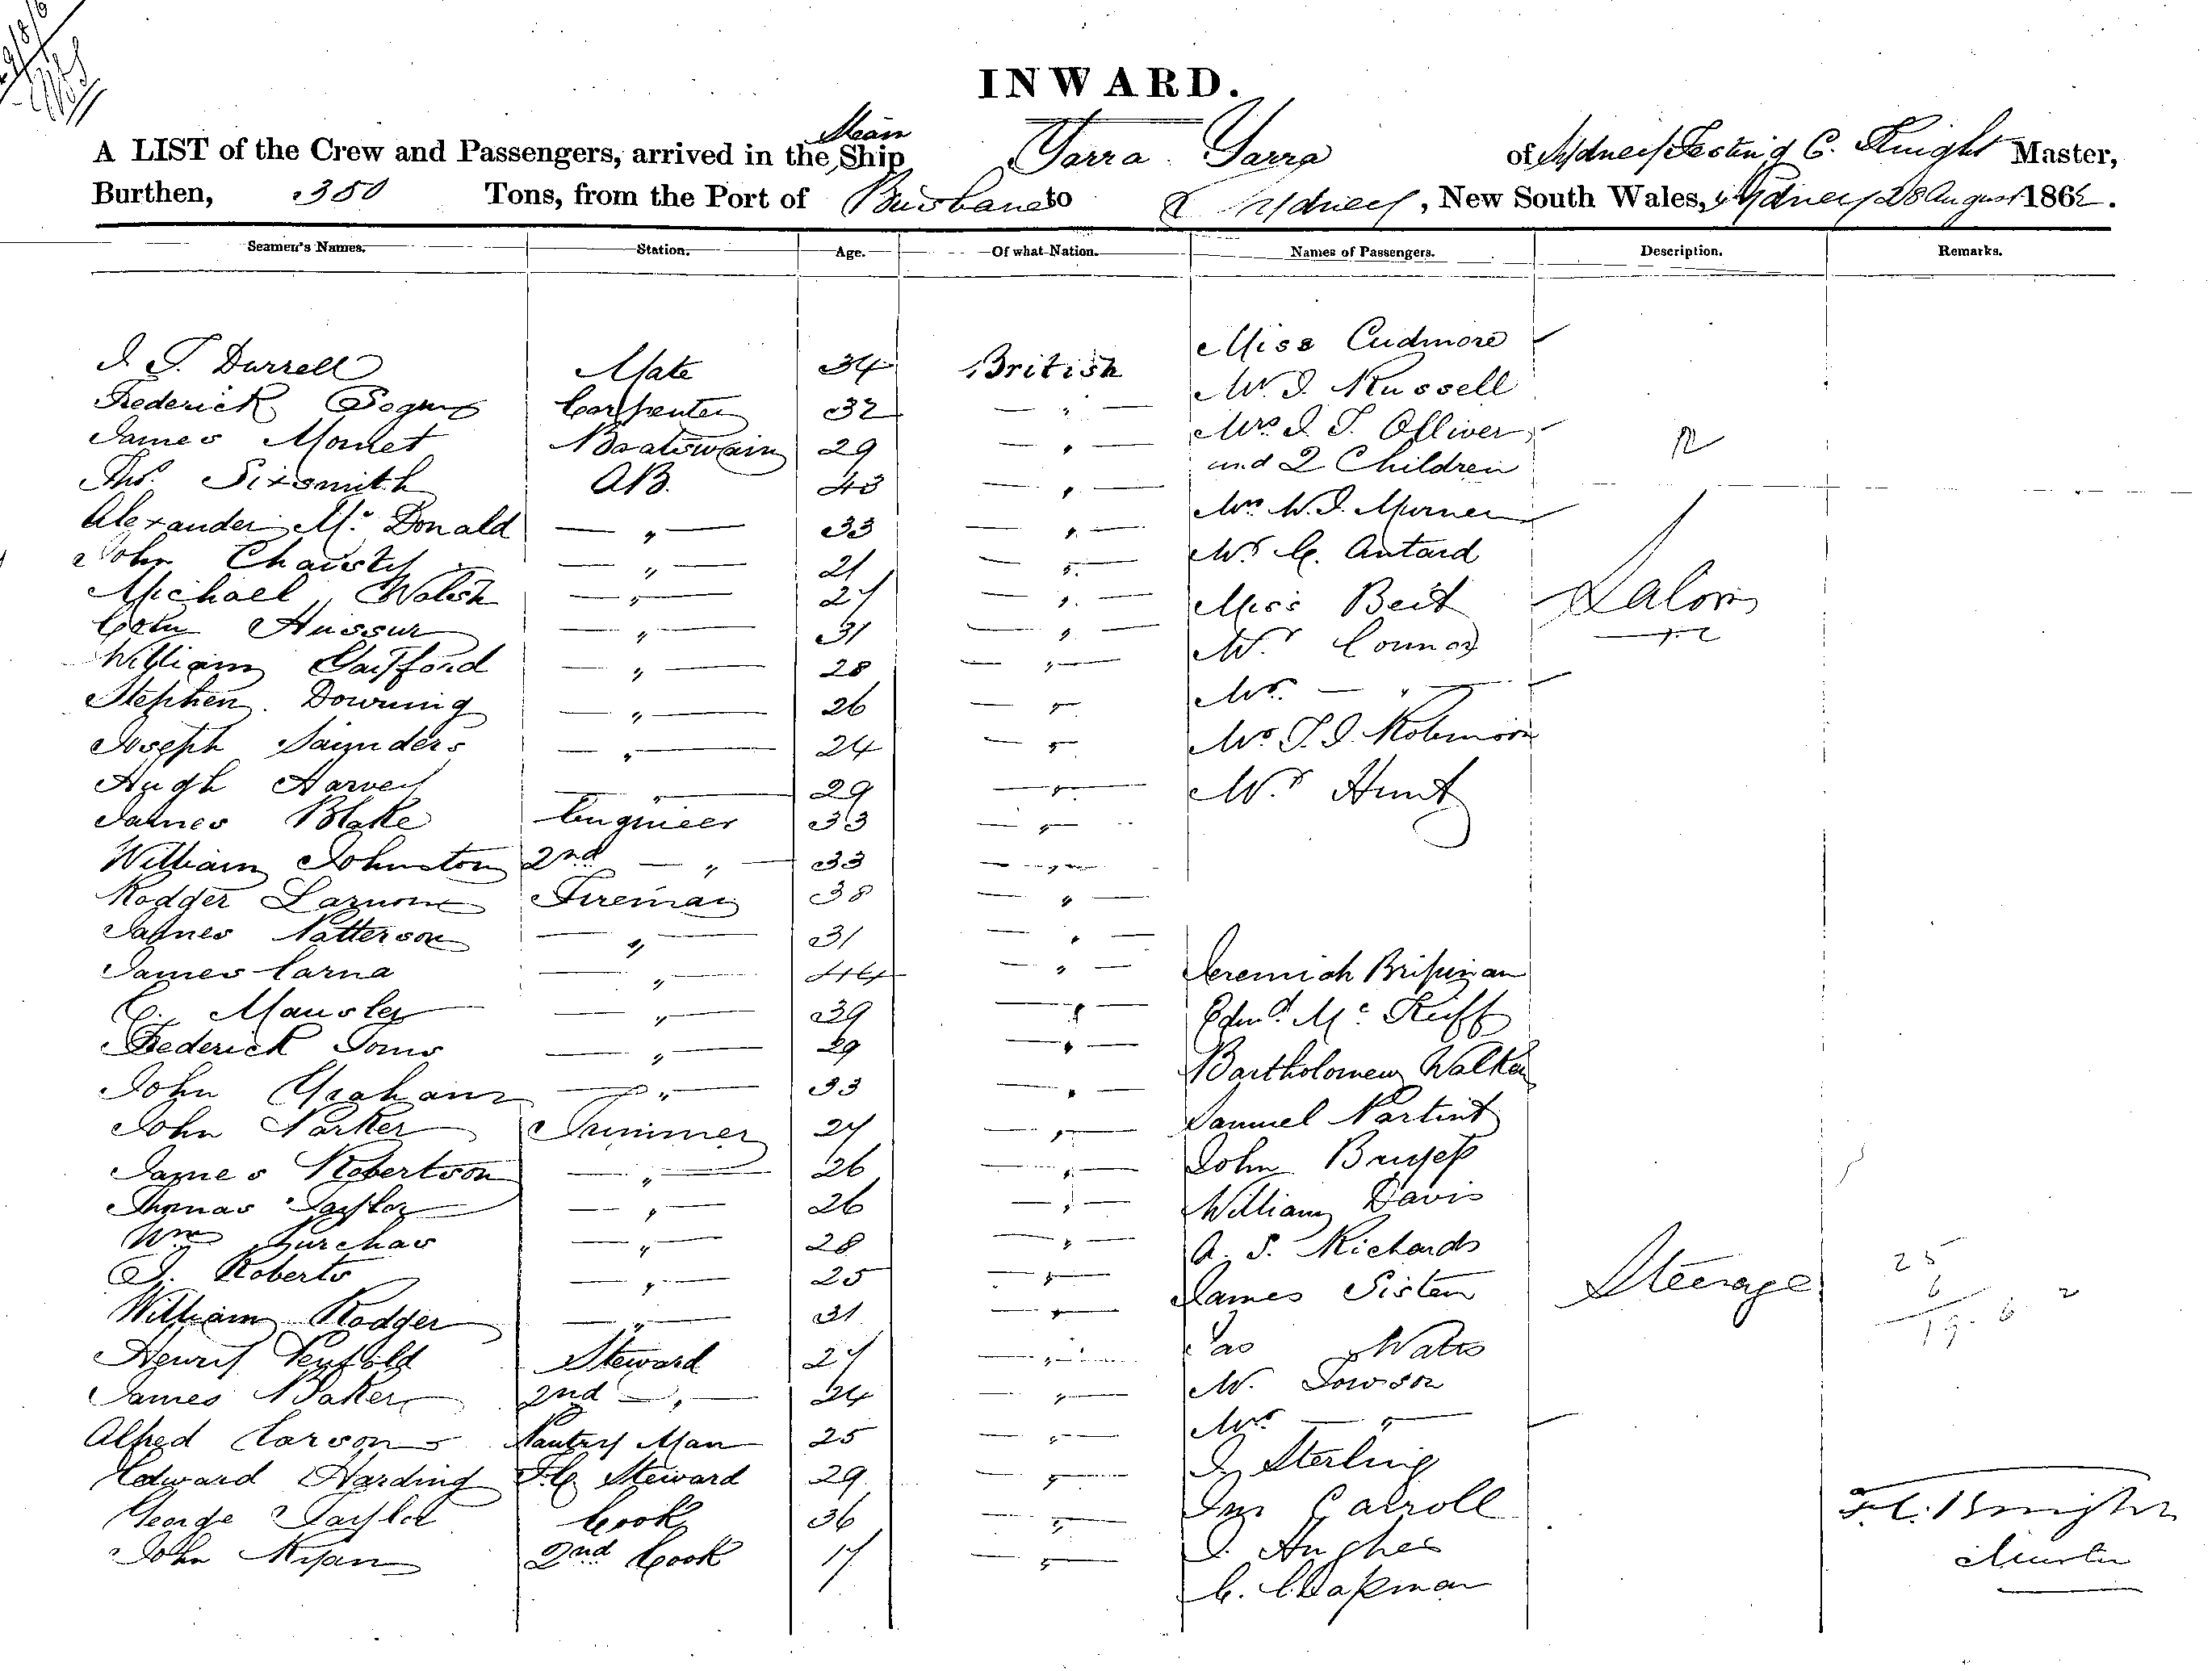 INWARD.
A LIST of the Crew and Passengers, arrived in the Steam Ship Yarra Yarra of Sydney C. Knight Master,
Burthen, 350 Tons, from the Port of Brisbane to Sydney, New South Wales, Sydney 28 August 1862.
Seamen's Names. Station. Age. Of what Nation. Names of Passengers. Description. Remarks.
Miss Cudmore
J T. Durrell Mate 34 British
Mr. J. Russell
Frederick Carpenter 32 — " —
Mrs. J. T. Olliver
James Monet Boatswain 29 — " —
and 2 Children
Thos. Sixsmith AB. 43 — " —
Mrs W. J.
Alexander Mc Donald — " — 33 — " —
Mr C.
John Christy — " — 21 — " —
Michael Walsh — " — 27 — " — Miss Beit Saloon
— " — 31 — " — Mr Connor
William — " — 28 — " —
Mrs. — " —
Stephen Downing — " — 26 — " —
Joseph Saunders — " — 24 — " — Mr T. J. Robinson
Hugh Harvey — " — 29 — " — Mr Hunt
James Blake Engineer 33 — " —
William Johnston 2nd — " — 33 — " —
Rodger Fireman 38 — " —
James Patterson — " — 31 — " —
James Carna — " — 44 — " — Jeremiah
C. Mausley — " — 39 — " — Edmd. Mc Kiff
Frederick Toms — " — 29 — " —
Bartholomew Walker
John Graham — " — 33 — " —
Samuel
John Parker Trimmer 27 — " —
John
James Robertson — " — 26 — " —
William Davis
Thomas Taylor — " — 26 — " —
Wm Purchas — " — 28 — " — A. S. Richards
25
J. Roberts — " — 25 — " — James Sisten Steerage
6
William Rodger — " — 31 — " —
19. 6 2
Jas Watts
Henry Penfold Steward 27 — " —
W. Towson
James Baker 2nd — " — 24 — " —
Mrs — " —
Alfred Carson Pantry Man 25 — " —
J. Sterling
Edward Harding F.C. Steward 29 — " —
Jno Carroll F. C. Knight
George Taylor Cook 36 — " —
J. Hughes Master
John Ryan 2nd Cook 17 — " —
C. Chapman